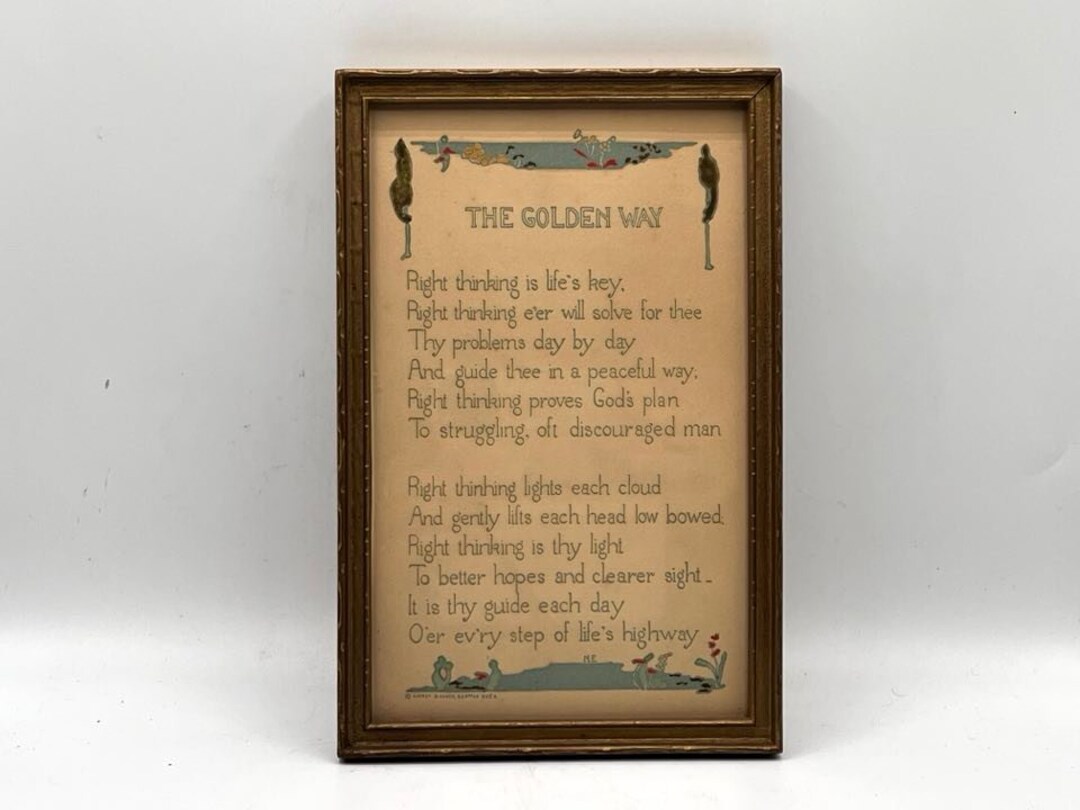 THE GOLDEN WAY
Right thinking is life's key,
Right thinking e'er will solve for thee
Thy problems day by day
And guide thee in a peaceful way;
Right thinking proves God's plan
To struggling, oft discouraged man
Right thinking lights each cloud
And gently lifts each head low bowed;
Right thinking is thy light
To better hopes and clearer sight -
It is thy guide each day
O'er ev'ry step of life's highway
©